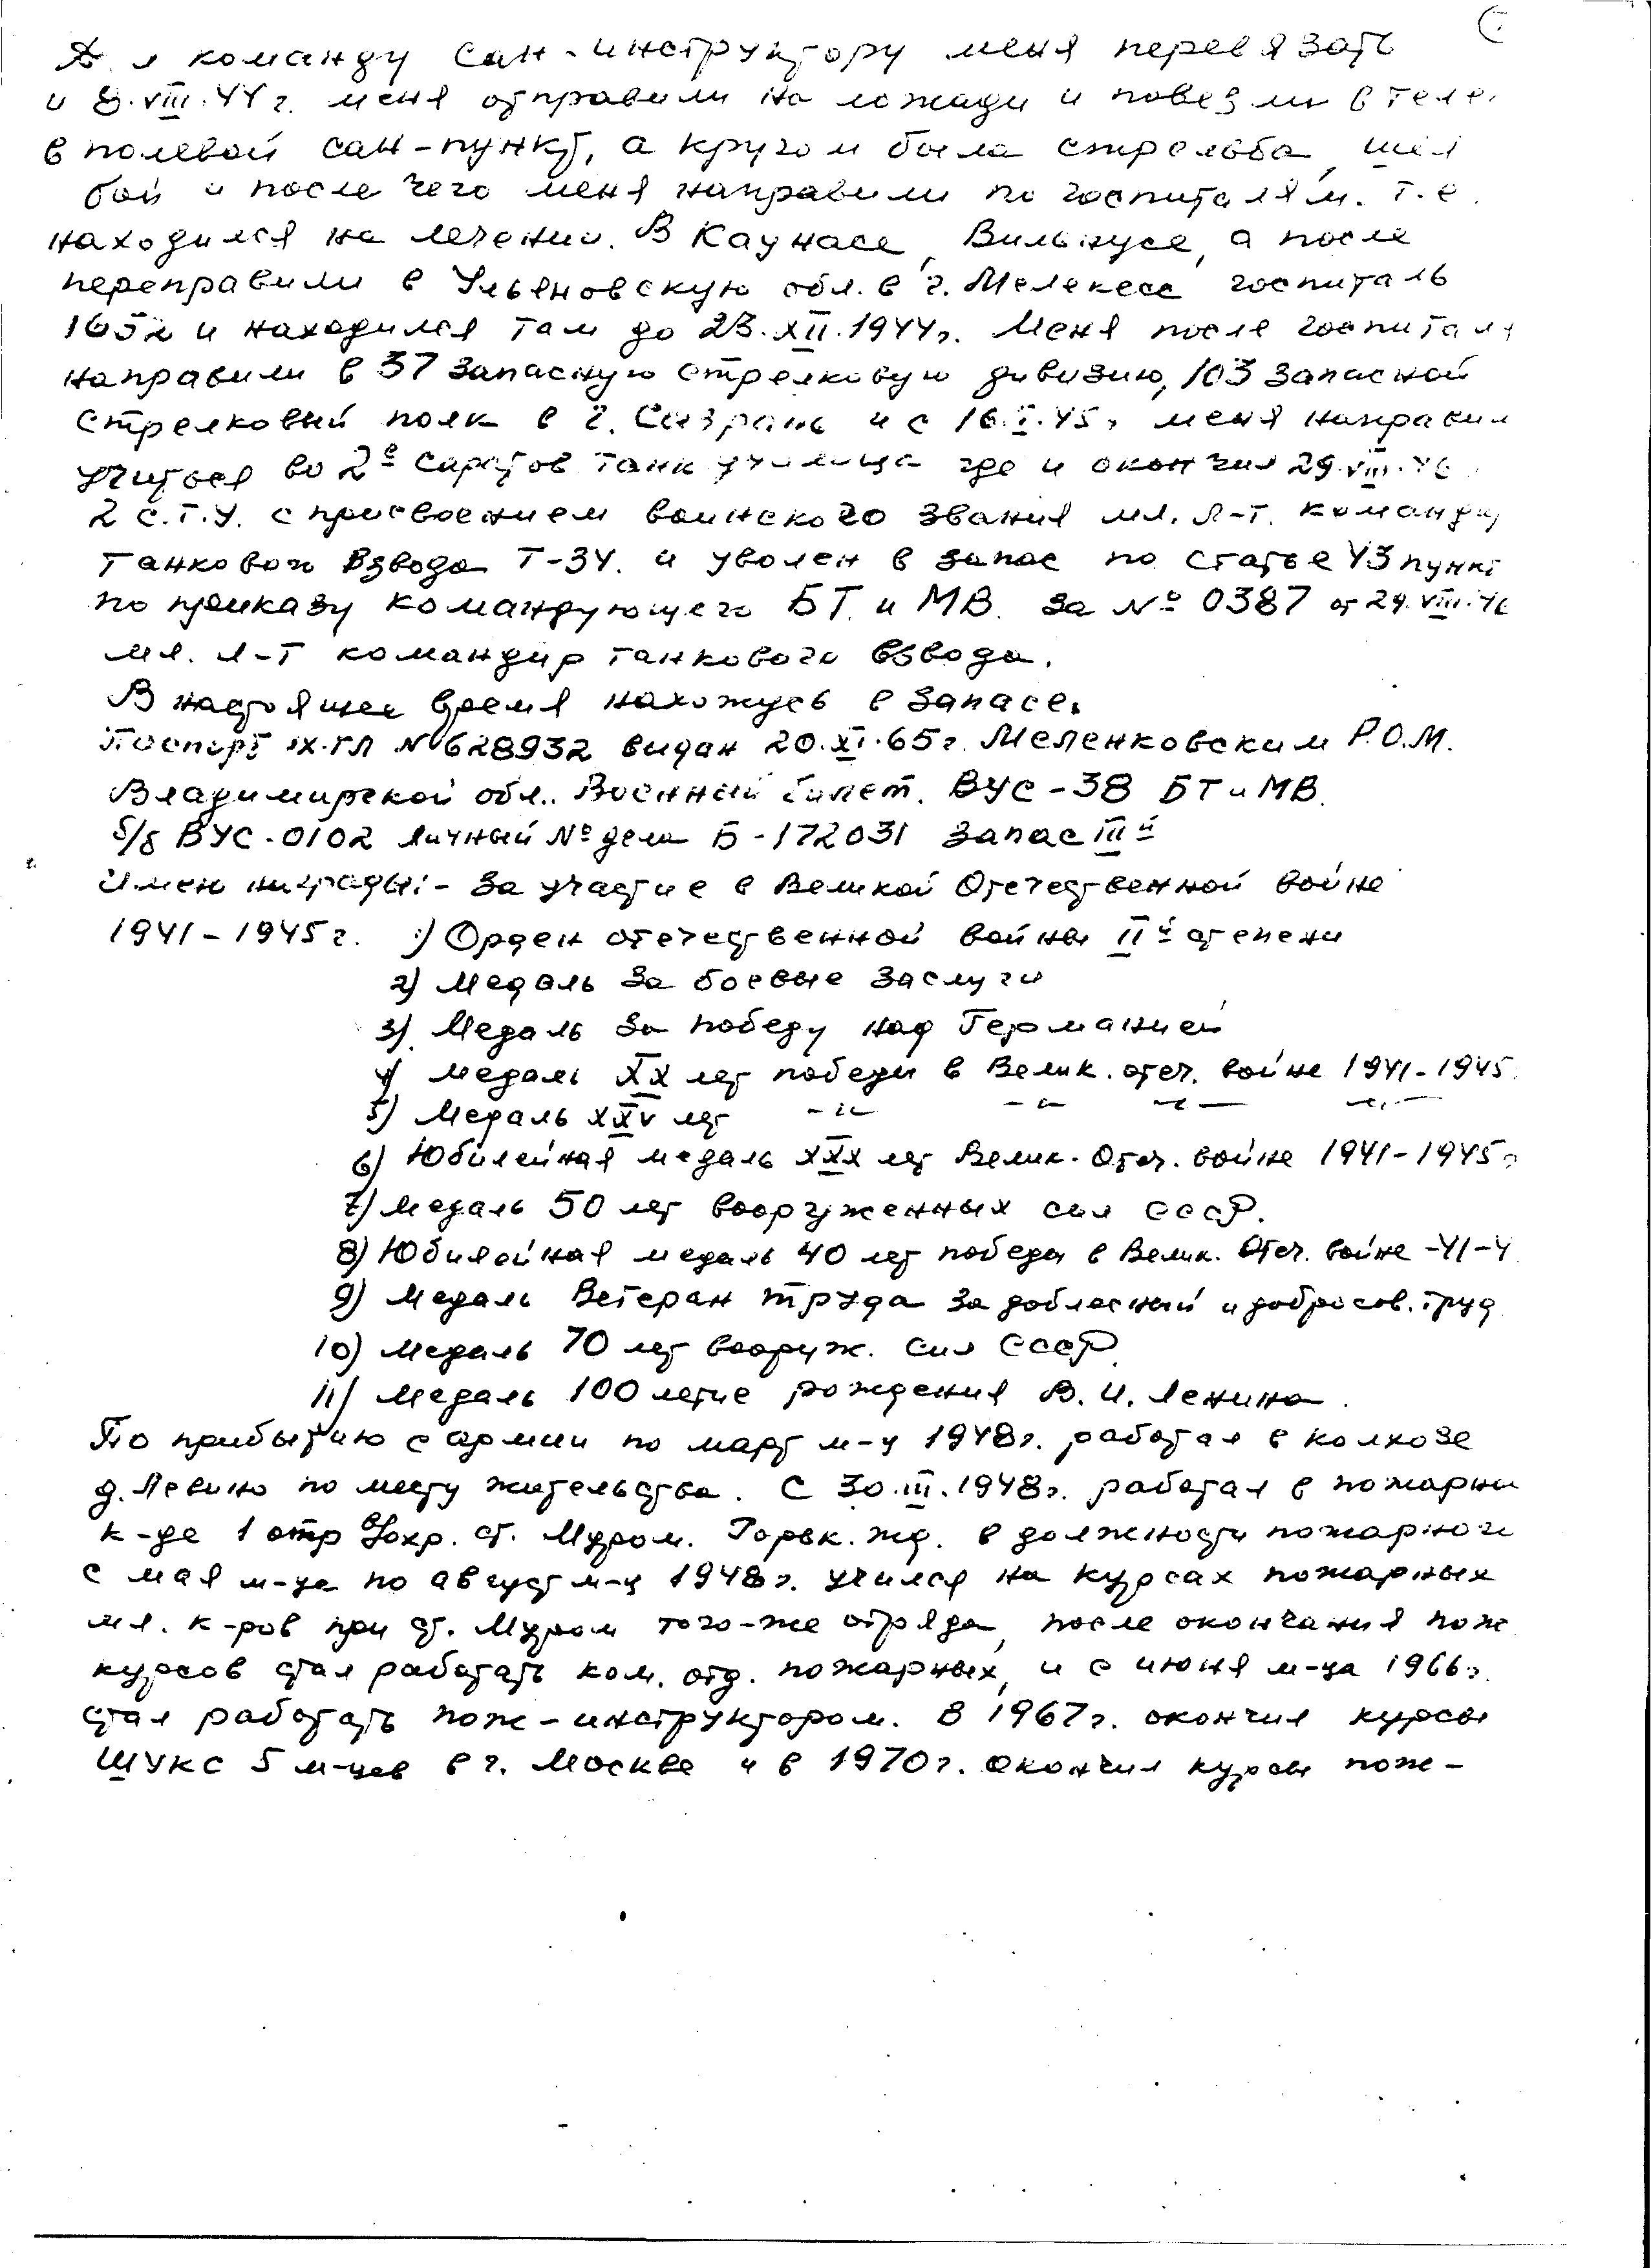 команду сан-инструктору меня перевязать
и 8.VIII.44г. меня отправили на лошади и повезли в теле
в полевой сан-пункт, а кругом была стрельба, шёл
бой и после чего меня направили по госпиталям. т.е.
находился на лечении. В Каунасе, Вильнусе, а после
переправили в Ульяновскую обл. в г. Мелекесс госпиталь
1652 и находился там до 23.XII.1944г. Меня после госпиталя
направили в 37 запасную стрелковую дивизию, 103 запасной
стрелковый полк в г. Сызрань и с 16.I.45г меня направили
учиться во 2е Саратов танк училище где и окончил 29.VIII.46
2 С.Т.У. с присвоением воинского звания мл. л-т. команди
танкового взвода Т-34. и уволен в запас по статье 43 пункт
по приказу командующего БТ. и МВ. за № 0387 от 29.VIII.46
мл. л-т командир танкового взвода.
В настоящее время нахожусь в запасе.
Паспорт IX-ГЛ № 628932 выдан 20.XI.65г. Меленковским Р.О.М.
Владимирской обл.. Военный билет. ВУС-38 БТ и МВ.
ВУС-0102 личный № дела Б-172031 запас IIIй
Имею награды:- За участие в Великой Отечественной войне
1941-1945г. 1) Орден отечественной войны IIй степени
2) Медаль За боевые заслуги
3) Медаль За победу над Германией
4) медаль XX лет победы в Велик. отеч. войне 1941-1945.
5) Медаль XXV лет -"- -"- -"- -"-
6) Юбилейная медаль XXX лет Велик. Отеч. войне 1941-1945г
7) Медаль 50 лет вооруженных сил СССР.
8) Юбилейная медаль 40 лет победы в Велик. Отеч. войне -41-4
9) Медаль Ветеран труда За доблестный и добросов. труд
10) Медаль 70 лет вооруж. сил СССР.
11) Медаль 100 летие рождения В. И. Ленина.
По прибытию с армии по март м-ц 1948г. работал в колхозе
д. Левино по месту жительства. С 30.III.1948г. работал в пожарной
к-де 1 отр Вохр. ст. Муром. Горьк. жд. в должности пожарного
с мая м-ца по август м-ц 1948г. учился на курсах пожарных
мл. к-ров при ст. Муром того-же отряда, после окончания пож
курсов стал работать ком. отд. пожарных, и с июня м-ца 1966г.
стал работать пож-инструктором. В 1967г. окончил курсы
ШУКС 5 м-цев в г. Москве и в 1970г. окончил курсы пож-